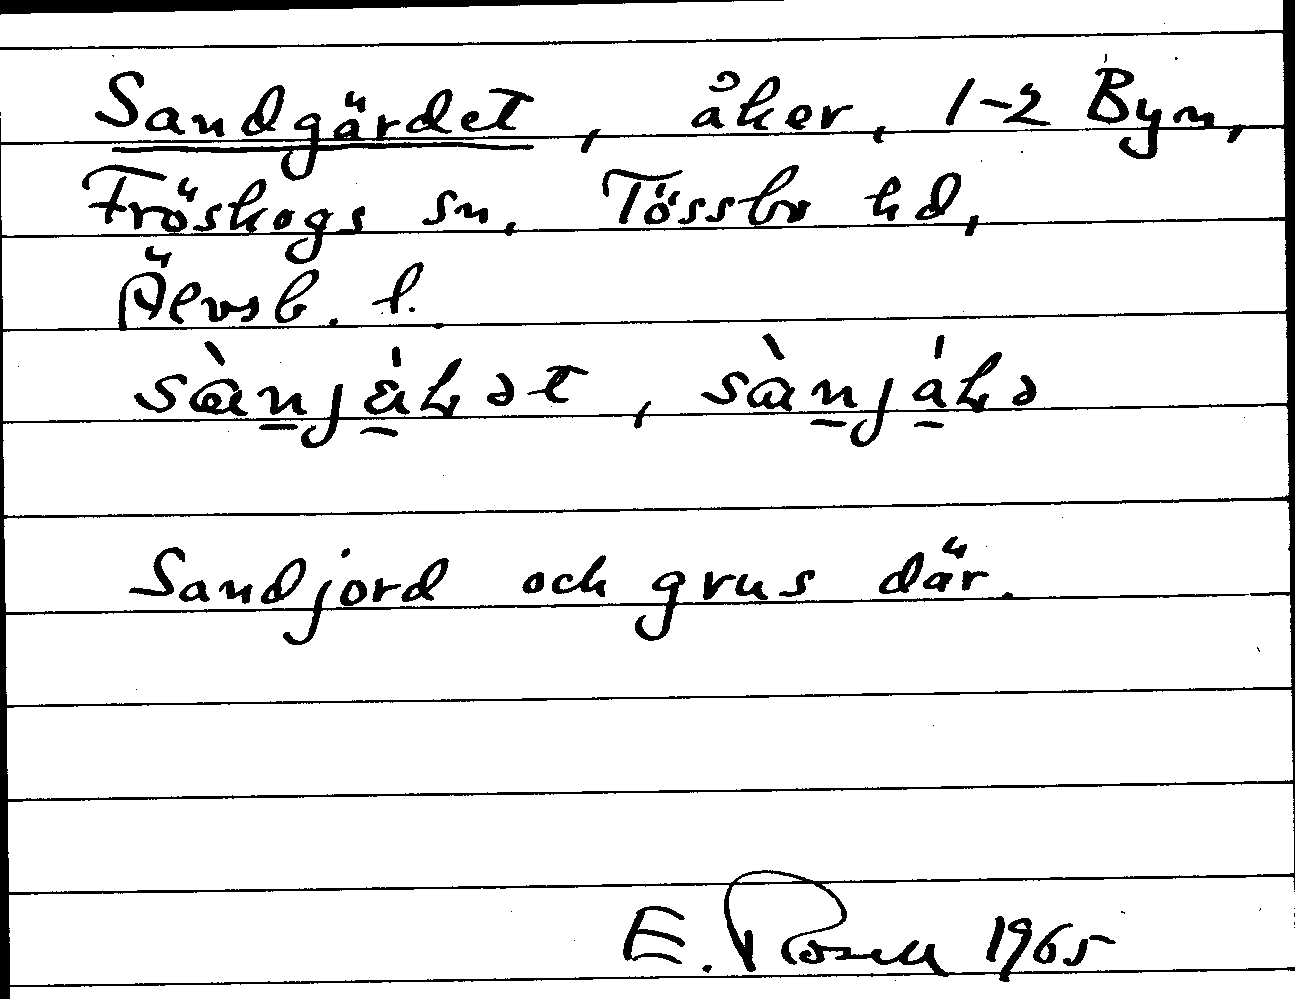 Sandgärdet, åker, 1-2 Byn,
Fröskogs sn, Tössbo hd,
Älvsb. l.
Sandjord och grus där.
E. Rosell 1965